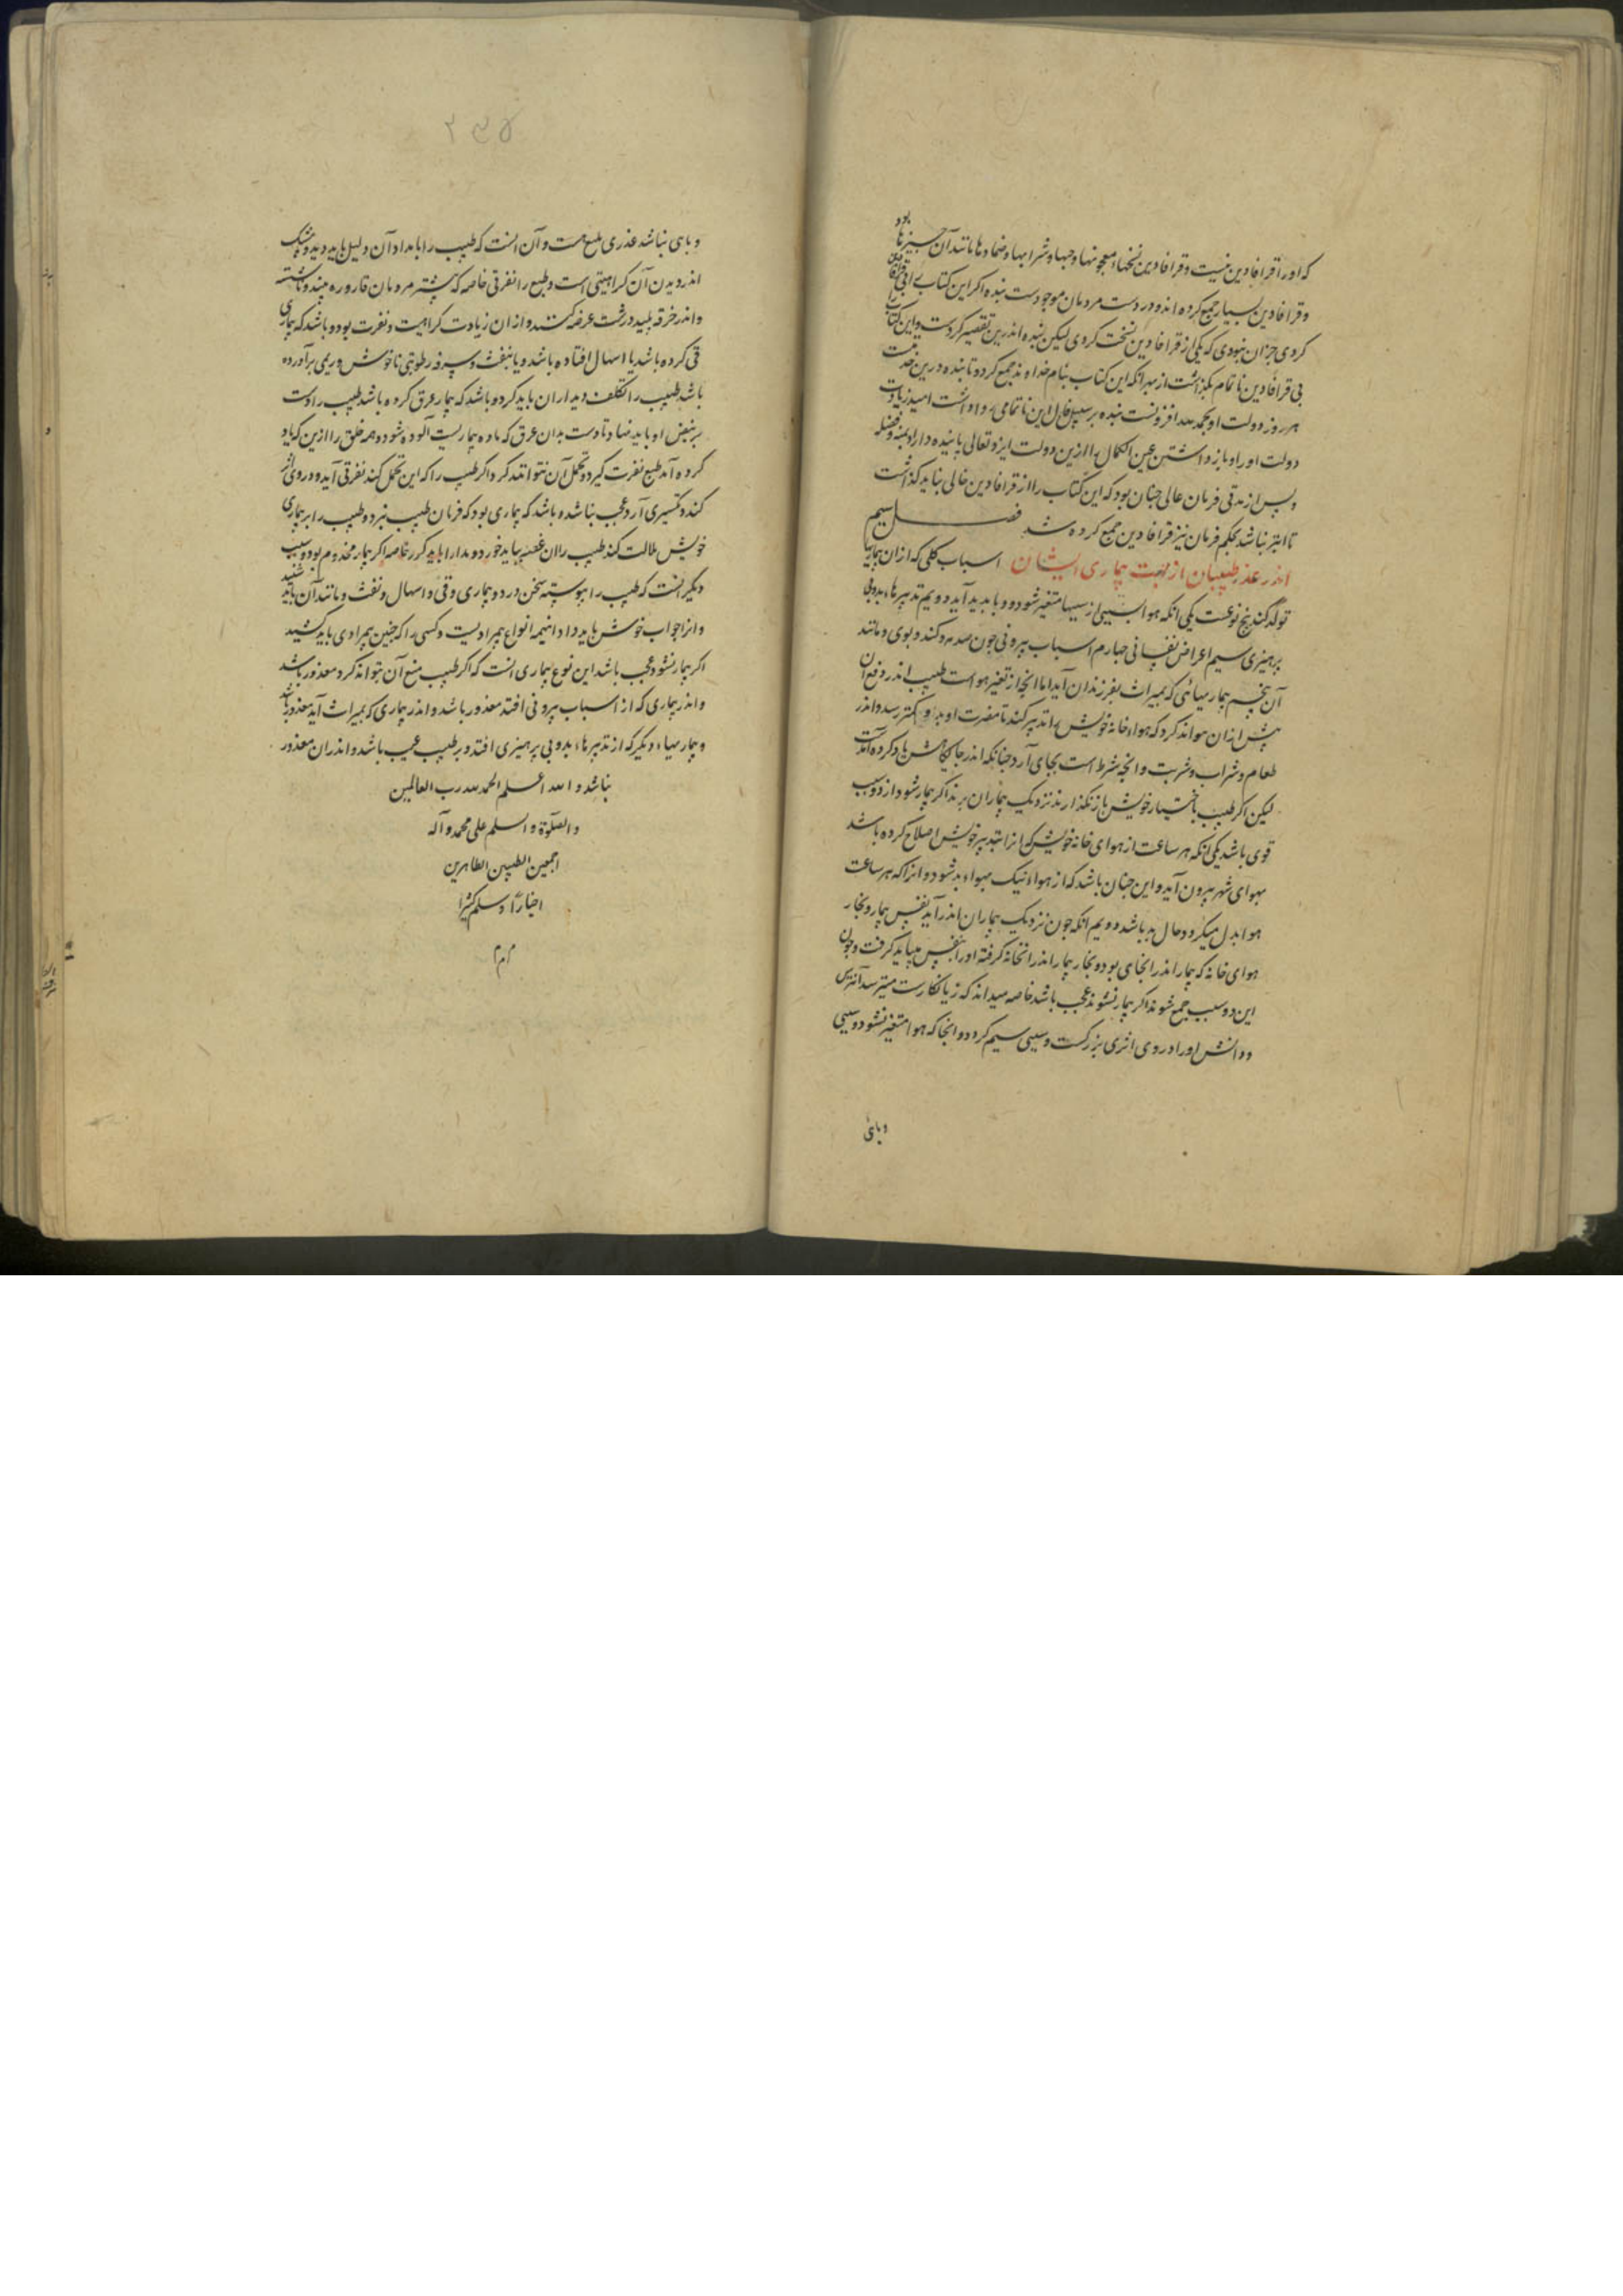 که او را قرافادین نیست و قرافادین نسخهاء معجونها و حبها و شرابها و ضمادها و مانند آن چیزها بود
و قرافادین بسیار جمع کرده اند و در دست مردمان موجودست بنده اگر این کتاب
کردی جز آن نبودی که یکی از قرافادین نسخت کردی لیکن بنده اندرین تقصیر کردست و این کتاب را
بی قرافادین ناتمام بگذاشت از بهر آنکه این کتاب بنام خداوند جمع کرد و تا بنده درین خدمت
هر روز دولت او بحمد الله افزونست بنده بر سبیل فال این ناتمامی روا داشت امید زیادت
دولت او را و باز داشتن عین الکمال را ازین دولت ایزد تعالی پاینده داراد بمنه و فضله
و پس از مدتی فرمان عالی چنان بود که این کتاب را از قرافادین خالی نباید گذاشت
تا ابتر نباشد بحکم فرمان نیز قرافادین جمع کرده شد فصل سیم
اندر عذر طبیبان از جهت بیماری ایشان اسباب کلی که از آن بیماریها
تولد کند پنج نوعست یکی آنکه هوا بسببی از سببها متغیر شود و وبا پدید آید دویم تدبیرهاء بد و بی
پرهیزی سیم اعراض نفسانی چهارم اسباب بیرونی چون صدمه و گند و بوی و مانند
آن پنجم بیماریهائی که بمیراث بفرزندان آید اما آنچه از تغیر هواست طبیب اندر دفع آن
بیش از آن نتواند کرد که هواء خانه خویش را تدبیر کند تا مضرت او بدو کمتر رسد و اندر
طعام و شراب و شربت و آنچه شرط است بجای آرد چنانکه اندر جایگاهش یاد کرده آمدست
لیکن اگر طبیب باختیار خویش باز نگذارند نزدیک بیماران برند اگر بیمار شود از دو سبب
قوی باشد یکی آنکه هر ساعت از هوای خانه خویش که آنرا بتدبیر خویش اصلاح کرده باشد
بهوای شهر بیرون آید و این چنان باشد که از هواء نیک بهواء بد شود و آنرا که هر ساعت
هوا بدل میگردد حال بد باشد دویم آنکه چون نزدیک بیماران اندر آید نفس بیمار و بخار
هوای خانه که بیمار اندر آنجای بود و بخار بیمار اندر آنخانه گرفته او را بنفس میباید گرفت و چون
این دو سبب جمع شوند اگر بیمار نشوند عجب باشد خاصه میداند که زیانکارست میترسد آن ترس
و دانش او را در وی اثری بزرگست و سببی سیم گردد و آنجا که هوا متغیر نشود و سببی
وبائی
۲۳۵
وبائی نباشد عذری بلیغ هست و آن آنست که طبیب را بامداد آن دلیل باید دید و بیشک
اندر دیدن آن کراهیتی است و طبع را نفرتی خاصه که بیشتر مردمان قاروره
و اندر خرقه پلید درشت عرضه کنند و از آن زیادت کراهیت و نفرت بود و باشد که بیماری
قی کرده باشد یا اسهال افتاده باشد و یا بنفث و سرفه رطوبتی ناخوش و ریمی برآورده
باشد طبیب را تکلف دیدار آن باید کرد و باشد که بیمار عرق کرده باشد طبیب را دست
بر نبض او باید نهاد تا دست بدان عرق که ماده بیماریست آلوده شود و همه خلق را ازین که یاد
کرده آمد طبع نفرت گیرد و تحمل آن نتوانند کرد اگر طبیب را که این تحمل کند نفرتی آید و در وی اثر
کند و تکسیری آرد عجب نباشد و باشد که بیماری بود که فرمان طبیب نبرد و طبیب را بر بیماری
خویش ملالت کند طبیب را آن غصه بباید خورد و مدارا باید کرد خاصه اگر بیمار مخدوم بود و سبب
دیگر آنست که طبیب را پیوسته سخن درد و بیماری و قی و اسهال و نفث و مانند آن باید شنید
و آنرا جواب خوش باید داد اینهمه انواع بیمرادیست و کسی را که چنین بیمرادی باید کشید
اگر بیمار نشود عجب باشد این نوع بیماری آنست که اگر طبیب منع آن نتواند کرد معذور باشد
و اندر بیماری که از اسباب بیرونی افتد معذور باشد و اندر بیماری که بمیراث آید معذور باشد
و بیماریهاء دیگر که از تدبیرهاء بد و بی پرهیزی افتد و بر طبیب عیب باشد و اندران معذور
نباشد و الله اعلم الحمد لله رب العالمین
والصلوة والسلم علی محمد وآله
اجمعین الطیبین الطاهرین
اخیارا وسلم کثیرا
م م